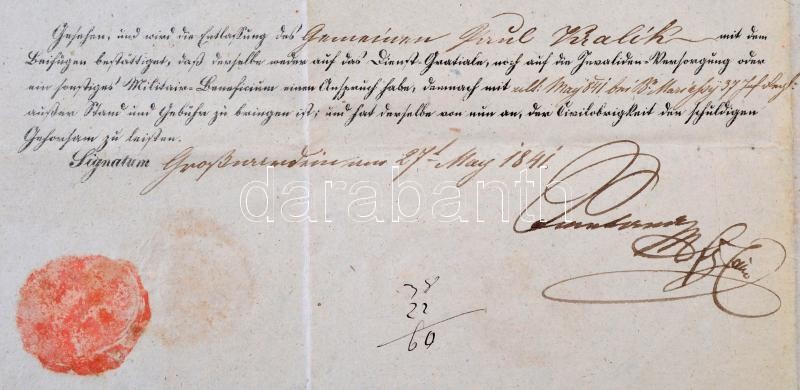 Gesehen, und wird die Entlassung des Gemeinen Paul Kralik mit dem
Beifügen bestättiget, daß derselbe weder auf das Dienst-Gratiale, noch auf die Invaliden-Versorgung oder
ein sonstiges Militair-Beneficium einen Anspruch habe, demnach mit ult: May 841 bei Bn. Mariassy 37 Inf. Regt:
außer Stand und Gebühr zu bringen ist; und hat derselbe von nun an, der Civilobrigkeit den schuldigen
Gehorsam zu leisten.
Signatum Großwardein am 27t May 1841
darabanth
38
22
60